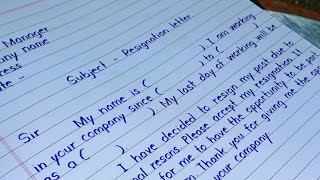 Manager
ny name
ress
te -
Subject - Resignation letter
Sir My name is ( ). I am working
in your company since ( ) to ( )
as a ( ). My last day of working will be
( ). I have decided to resign my post due to
nal resons. Please accept my resignation. It
for me to have the opportunity to be part
Thank you for giving me the
your company.